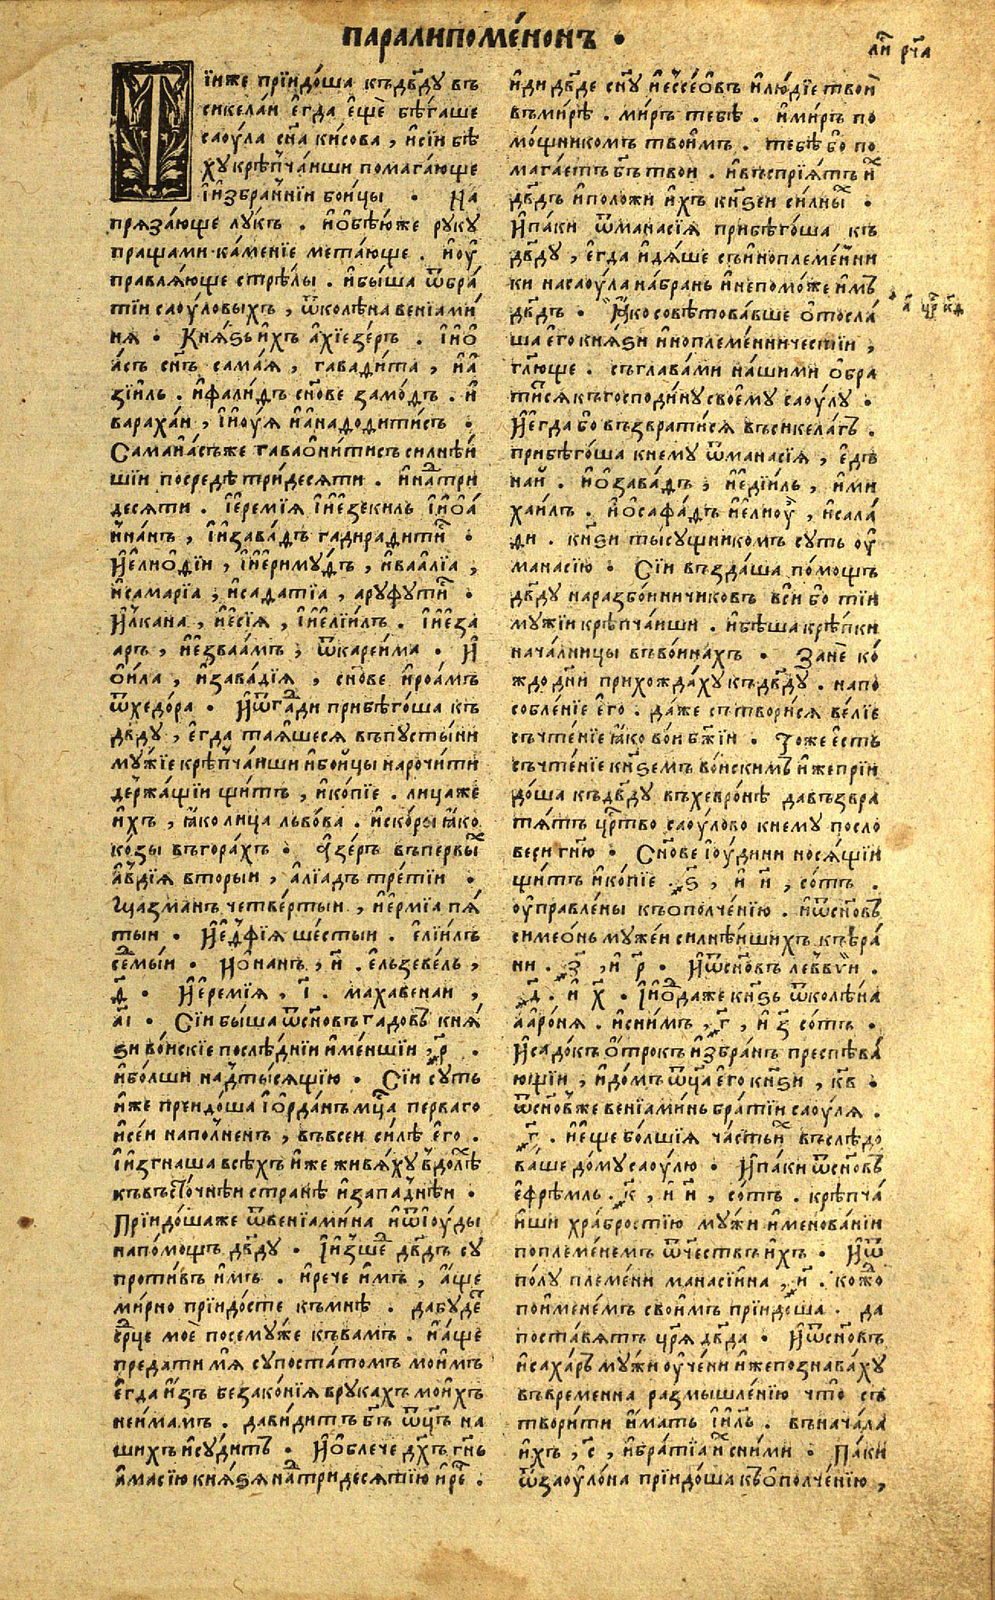 паралипоме́нонъ ·
ли҃ рч҃а
Т
їиже прїидо́ша къдв҃ду въ
сикелаи е҆гда є҆щѐ бѣ́гаше
саоу́ла сн҃а ки́сова , и҆сїи бѣ́
ху крѣпча́иши помага́юще
и҆и҆збра́ннїи бои́цы · На
пряза́юще лу́къ . и҆о҆бѣ́юже руку
пращами ка́менїе метающе . и҆оу҆
правля́юще стрѣ́лы . и҆бы́ша ѿбра́
тїи саоу́ловыхъ , ѿколѣ́на венїами́
ня · Кня́зьи҆хъ а҆хїезе́ръ . і҆и҆о҆
а́съ сн҃ъ сама́я , гавадита , и҆а҆
зїи́ль . и҆фали́дъ сн҃ове замо́дъ . и҆
варахаи , і҆и҆оу́я и҆а҆надодитисъ ·
Самаи́асъже гаваонитисъ силнѣ́и
шїи посредѣ три́десяти . и҆на́три
десяти . і҆еремїя і҆и҆езекиль і҆и҆о҆а́
и҆на́нъ , і҆и҆зава́дъ гадиради́тїи ·
И҆елио́дїи , і҆и҆ерїму́дъ , и҆ваалїа ,
и҆самарїа , и҆садатїа , аруфутїи ·
И҆лкана , и҆е҆сїя , і҆и҆елїилъ . і҆и҆еза
аръ , и҆езваамъ , ѿкаре́има · И҆
о҆и́ла , и҆зава́дїя , сн҃ове и҆роамъ
ѿхедо́ра · И҆ѿга́ди прибѣго́ша къ
дв҃ду , е҆гда тая́шеся въпусты́ни
му́жїе крѣпча́иши и҆бои́цы нарочи́ти
держа́щїи щи́тъ , и҆ко́пїе . лицаже
и҆хъ , ꙗ҆́ко лица льво́ва . и҆ско́ры ꙗ҆ко
ко́зы въгора́хъ · а҆зе́ръ въпервы́
а҆вдїя вторыи , а҆лїадъ тре́тїи ·
Щазманъ четве́ртыи , и҆е҆рмїа пя́
тыи · И҆е҆дфїя ше́стыи . е҆лїилъ
се́мыи · И҆о҆нанъ , и҃ . е҆льзеве́ль ,
д҃ · И҆е҆ремїя , і҃ . махавенаи ,
а҃і · Сїи бы́ша ѿсн҃овъ гадовъ кня́
зи во́искїе послѣ́днїи и҆ме́ншїи , р҃ ·
и҆бо́лши на́дты́сящїю · Сїи суть
и҆же преидо́ша і҆о҆рда́нъ мц҃а перваго
и҆се́и напо́лненъ , въвсеи си́лѣ е҆го .
і҆и҆згнаша всѣ́хъ и҆же живя́ху вдолѣ
къвъсто́чнѣи странѣ и҆западнѣ́и ·
Прїидо́шаже ѿвенїами́на и҆ѿїоу́ды
напо́мощъ дв҃ду · і҆и҆зы́де дв҃дъ су
проти́въ и҆мъ . и҆рече и҆мъ , а҆́ще
ми́рно прїидо́сте къмнѣ . дабу́де
ср҃це моѐ посему́же къвамъ . и҆а҆́ще
преда́ти мя́ супоста́томъ мои҆мъ
е҆гда и҆́зъ безако́нїя врука́хъ мои҆хъ
неи́мамъ . дави́дитъ бг҃ъ ѿц҃ъ на
шихъ и҆су́дитъ · И҆о҆блече дх҃ъ гн҃ь
а҆масїю кня́зя на́тридеся́тїю и҆рѐ .
и҆ди дв҃де сн҃у и҆е҆ссе́о҆въ и҆лю́дїе твои
въми́рѣ . ми́ръ тебѣ . и҆ми́ръ по
мо́щникомъ твои́мъ . тебѣ бо по
мага́етъ бг҃ъ твои . и҆въспрїя́тъ и҆х
дв҃дъ и҆положи и҆хъ кн҃зеи си́лны ·
И҆па́ки ѿманасїя прибѣго́ша къ
дв҃ду , е҆гда и҆дя́ше съи҆ноплеме́нни
ки насаоу́ла на́брань и҆непомо́же и҆мъ
дв҃дъ · Ꙗ҆́ко совѣтова́вше о҆тосла́
ша е҆го кня́зи и҆ноплеме́нничестїи ,
гл҃юще . съглава́ми на́шими о҆бра
ти́ся къгосподи́ну своему саоу́лу ·
И҆егда бо възврати́ся въсикела́гъ .
прибѣго́ша кнему ѿманасїя , е҆дъ
наи . и҆о҆зава́дъ , и҆е҆дїи́ль , и҆ми
хаилъ . и҆о҆сафа́дъ и҆е҆лиоу , и҆сала́
ди . кн҃зи ты́сущникомъ суть оу҆
манасїю · Сїи възда́ша по́мощъ
дв҃ду наразбо́иничиковъ вси бо тїи
му́жїи крѣпча́иши . и҆бѣ́ша крѣ́пки
нача́лницы въво́инахъ · Занѐ ко́
ждо дн҃и прихожда́ху къдв҃ду . напо
собле́нїе е҆го . даже сътвори́ся ве́лїе
съчте́нїе ꙗ҆́ко во́и бж҃їи · Тоже е҆сть
съчте́нїе кн҃земъ во́искимъ и҆жепрїи
до́ша къдв҃ду въхевро́нѣ давъзвра
тя́тъ црт҃во саоу́лово кнему посло
веси гн҃ю · Сн҃ове і҆оу́дини нося́щїи
щи́тъ и҆ко́пїе , ѕ҃ , и҆ и҃ , со́тъ .
оу҆правле́ны къополче́нїю . и҆ѿсн҃овъ
симео́нь муже́и силнѣ́ишихъ къбра́
ни . з҃ , и҆ р҃ · И҆ѿсн҃овъ левви́и .
д҃ . и҆ х҃ · і҆и҆о҆даже кн҃зь ѿколѣ́на
ааро́ня . и҆сни́мъ , г҃ , и҆ з҃ со́тъ ·
И҆садо́къ о҆́трокъ и҆збра́нъ преспѣва́
ющїи , и҆до́мъ ѿц҃а е҆го кн҃зи , к҃в ·
ѿсн҃овъже венїами́нь бра́тїи саоу́ля .
г҃ . и҆е҆ще бо́лшїя ча́стьи҆ въслѣ́до
ва́ше до́му саоу́лю · И҆па́ки ѿсн҃овъ
е҆фре́мль . к҃ , и҆ и҃ , со́тъ . крѣпча́
иши хра́бростїю мужи и҆менова́нїи
поплеме́немъ ѿчествъ и҆хъ · И҆ѿ
по́лу пле́мени манасїи́на , и҃ . кожо
пои҆мене́мъ свои́мъ прїидо́ша . да
поста́вятъ цр҃я дв҃да · И҆ѿсн҃овъ
и҆саха́ръ му́жи оу҆че́ни и҆жепознава́ху
въвремена размышле́нїю что̀ съ
твори́ти и҆́мать і҆и҃ль . въначала
и҆хъ , с҃ , и҆бра́тїа и҆ сни́ми · Па́ки
ѿзаоуло́на прїидо́ша къо҆полче́нїю ,
а҃ цр҃ к҃д